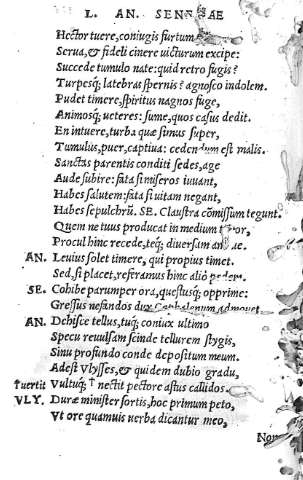 L. AN. SENECAE
Hector tuere, coniugis furtum
Serua, & fideli cinere uicturum excipe:
Succede tumulo nate: quid retro fugis?
Turpesq; latebras spernis? agnosco indolem.
Pudet timere, spiritus magnos fuge,
Animosq; ueteres: sume, quos casus dedit.
En intuere, turba quæ simus super,
Tumulus, puer, captiua: cedendum est malis.
Sanctas parentis conditi sedes, age
Aude subire: fata si miseros iuuant,
Habes salutem: fata si uitam negant,
Habes sepulchrū. SE. Claustra cōmissum tegunt.
Quem ne tuus producat in medium timor,
Procul hinc recede, teq; diuersam
AN. Leuius solet timere, qui propius timet.
Sed, si placet, referamus hinc aliò pedem.
SE. Cohibe parumper ora, questusq; opprime:
Gressus nefandos dux Cephalenum admouet.
AN. Dehisce tellus, tuq; coniux ultimo
Specu reuulsam scinde tellurem stygis,
Sinu profundo conde depositum meum.
Adest Vlysses, & quidem dubio gradu,
† uertit Vultuq; † nectit pectore astus callidos.
VLY. Duræ minister sortis, hoc primum peto,
Vt ore quamuis uerba dicantur meo,
Non